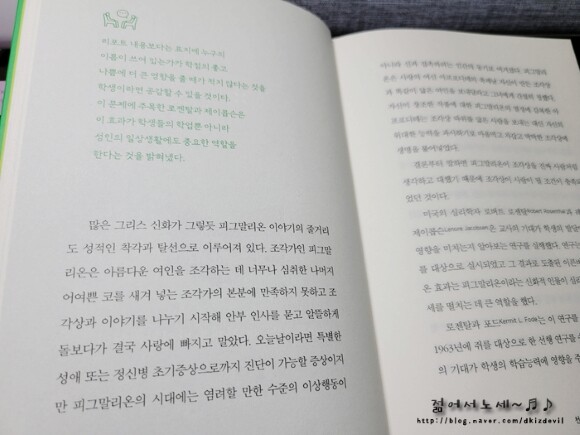 리포트 내용보다는 표지에 누구의
이름이 쓰여 있는가가 학점의 좋고
나쁨에 더 큰 영향을 줄 때가 적지 않다는 것을
학생이라면 공감할 수 있을 것이다.
이 문제에 주목한 로젠탈과 제이콥슨은
이 효과가 학생들의 학업뿐 아니라
성인의 일상생활에도 중요한 역할을
한다는 것을 밝혀냈다.
많은 그리스 신화가 그렇듯 피그말리온 이야기의 줄거리
도 성적인 착각과 탈선으로 이루어져 있다. 조각가인 피그말
리온은 아름다운 여인을 조각하는 데 너무나 심취한 나머지
어여쁜 코를 새겨 넣는 조각가의 본분에 만족하지 못하고 조
각상과 이야기를 나누기 시작해 안부 인사를 묻고 알뜰하게
돌보다가 결국 사랑에 빠지고 말았다. 오늘날이라면 특별한
성애 또는 정신병 초기증상으로까지 진단이 가능할 증상이지
만 피그말리온의 시대에는 염려할 만한 수준의 이상행동이
생명을 불어넣었다.
결론부터 말하면 피그말리온이 조각상을 진짜 사람처럼
생각하고 대했기 때문에 조각상이 사람이 될 조건이 충족되
었던 것이다.
미국의 심리학자 로버트 로젠탈Robert Rosenthal과
제이콥슨Lenore Jacobson은 교사의 기대가 학생의 발달에
영향을 미치는지 알아보는 연구를 실행했다. 연구는
를 대상으로 실시되었고 그 결과로 도출된 이른바
온 효과는 피그말리온이라는 신화적 인물이 심리
세를 떨치는 데 큰 역할을 했다.
로젠탈과 포드Kermit L. Fode는 이 연구를
1963년에 쥐를 대상으로 한 선행 연구를
의 기대가 학생의 학습능력에 영향을 주
젊어서노세~♬♪
http://blog.naver.com/dkizdevil